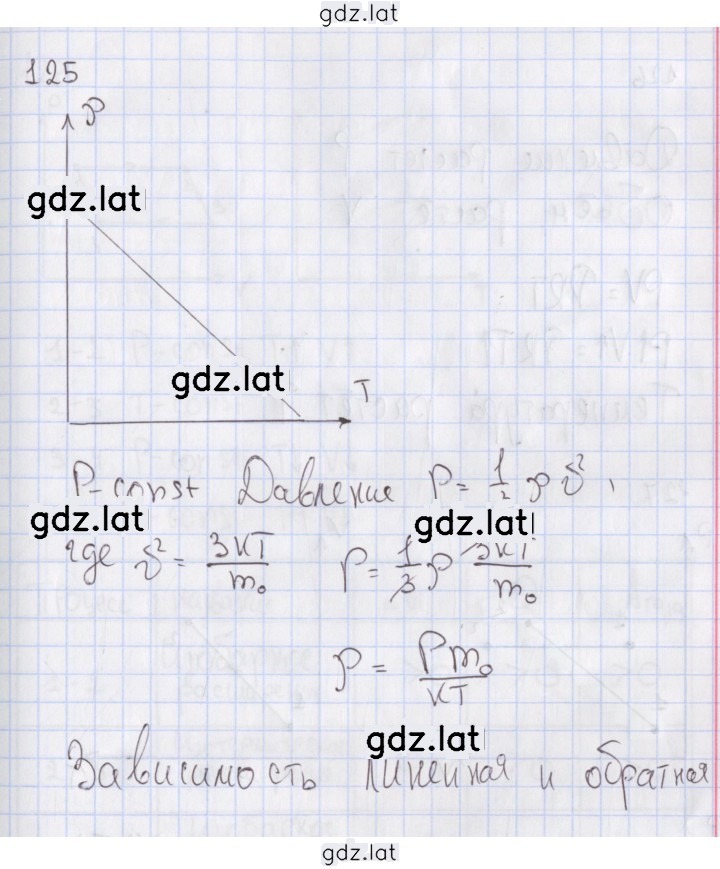 gdz.lat
125
ρ
gdz.lat
gdz.lat
T
P-const Давление P = 1/2 ρ υ²,
gdz.lat
gdz.lat
где υ² = 3кТ/m₀ P = 1/3 ρ 3кТ/m₀
ρ = Pm₀/кТ
gdz.lat
Зависимость линейная и обратная
gdz.lat